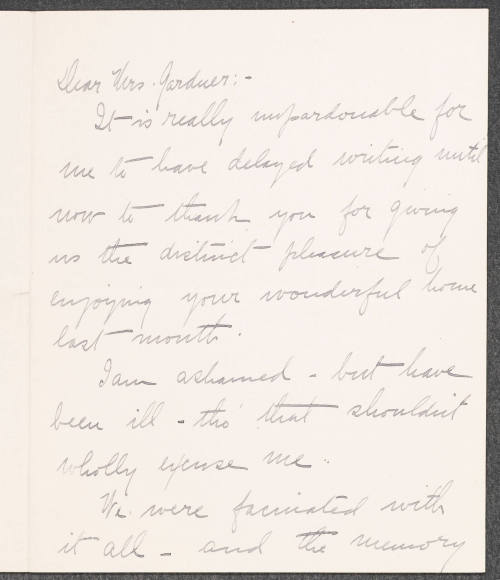 Dear Mrs. Gardner:-
It is really unpardonable for
me to have delayed writing until
now to thank you for giving
us the distinct pleasure of
enjoying your wonderful home
last month.
I am ashamed - but have
been ill - tho' that shouldn't
wholly excuse me..
We were facinated with
it all - and the memory